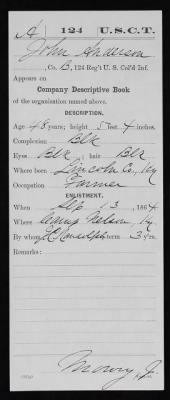 A 124 U.S.C.T.
John Anderson
, Co. B, 124 Reg't U. S. Col'd Inf.
Appears on
Company Descriptive Book
of the organization named above.
DESCRIPTION.
Age 48 years; height 5 feet 4 inches.
Complexion Blk
Eyes Blk, hair Blk
Where born Lincoln Co., Ky
Occupation Farmer
ENLISTMENT.
When Sep 13, 1864
Where Camp Nelson, Ky
By whom Randolph term 3 yrs.
Remarks:
Copyist.